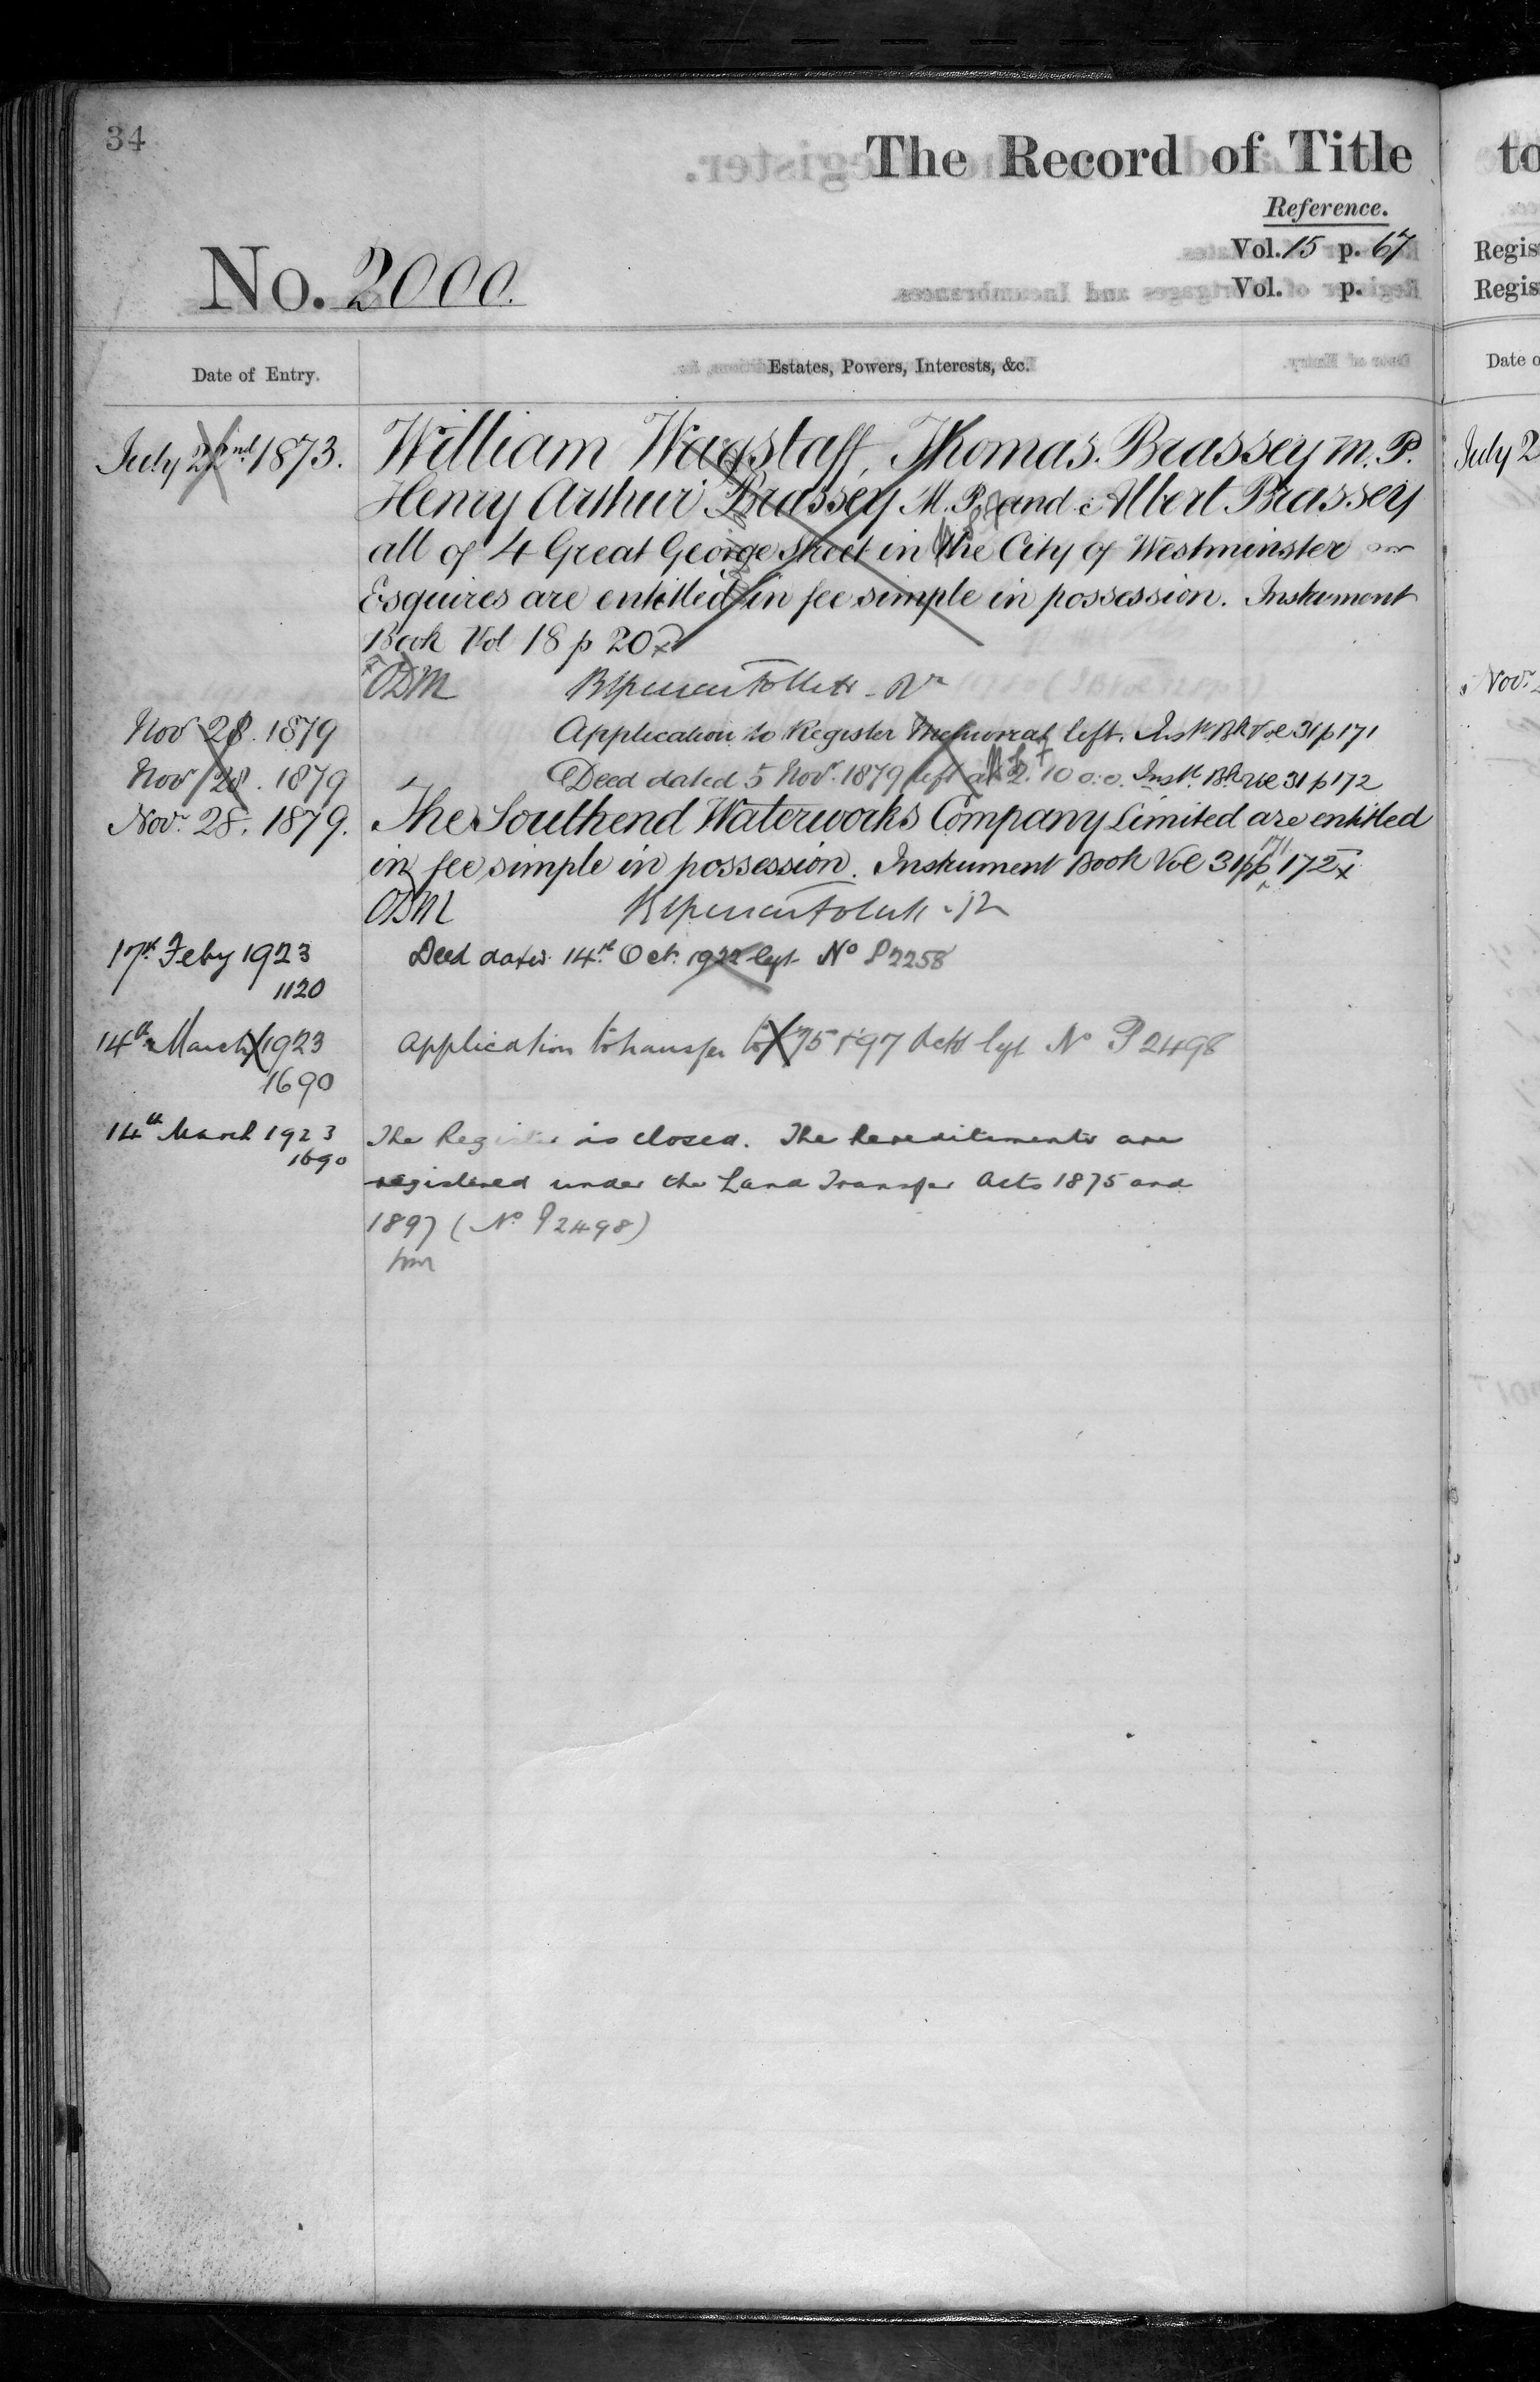 34
The Record of Title
Reference.
No. 2000.
Vol. 15 p. 67
Vol. p.
Date of Entry.
Estates, Powers, Interests, &c.
July 22nd 1873. William Wagstaff, Thomas Brassey M.P.
Henry Arthur Brassey M.P. and Albert Brassey
all of 4 Great George Street in the City of Westminster
Esquires are entitled in fee simple in possession. Instrument
Book Vol 18 p 20
ODM
Nov 28. 1879 Application to Register Memorial left. Inst Bk Vol 31 p 171
Nov 28. 1879 Deed dated 5 Nov. 1879 left at 2.10 o.c. Inst. Bk Vol 31 p 172
Nov. 28. 1879. The Southend Waterworks Company Limited are entitled
in fee simple in possession. Instrument Book Vol 31 pp 171 172
ODM
17th Feby 1923 Deed dated 14th Oct. 1922 left No P2258
1120
14th March 1923 Application to transfer to 75 + 97 Acts left No P2498
1690
14th March 1923 The Register is closed. The hereditaments are
1690
registered under the Land Transfer Acts 1875 and
1897 (No P2498)
to
Regis
Regis
Date o
July 2
Nov.